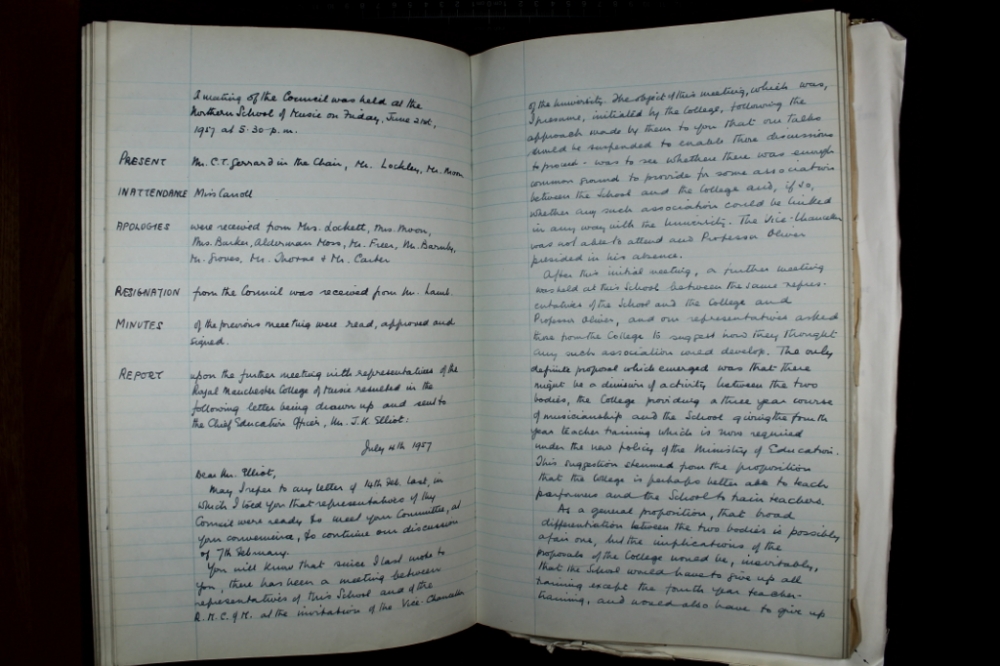 A meeting of the Council was held at the
Northern School of Music on Friday, June 21st,
1957 at 5.30 p.m.
PRESENT Mr. C.T. Gerrard in the Chair, Mr. Lockley, Mr. Moon
IN ATTENDANCE Miss Carroll
APOLOGIES were received from Mrs. Lockett, Mrs. Moon,
Mrs. Barker, Alderman Moss, Mr. Freer, Mr. Barnby,
Mr. Groves, Mr. Thorne & Mr. Carter
RESIGNATION from the Council was received from Mr. Lamb.
MINUTES of the previous meeting were read, approved and
signed.
REPORT upon the further meeting with representatives of the
Royal Manchester College of Music resulted in the
following letter being drawn up and sent to
the Chief Education Officer, Mr. J.K. Elliot:
July 4th 1957
Dear Mr. Elliot,
May I refer to my letter of 14th Feb. last, in
which I told you that representatives of my
Council were ready to meet your Committee, at
your convenience, to continue our discussion
of 7th February.
You will know that since I last wrote to
you, there has been a meeting between
representatives of this School and of the
R.M.C. of M. at the invitation of the Vice-Chancellor
of the University. The object of this meeting, which was,
I presume, initiated by the College, following the
approach made by them to you that our talks
should be suspended to enable those discussions
to proceed - was to see whether there was enough
common ground to provide for some association
between the School and the College and, if so,
whether any such association could be linked
in any way with the University. The Vice-Chancellor
was not able to attend and Professor Oliver
presided in his absence.
After this initial meeting, a further meeting
was held at this School between the same repres-
entatives of the School and the College and
Professor Oliver, and our representatives asked
those from the College to suggest how they thought
any such association could develop. The only
definite proposal which emerged was that there
might be a division of activity between the two
bodies, the College providing a three year course
of musicianship and the School giving the fourth
year teacher training which is now required
under the new policy of the Ministry of Education.
This suggestion stemmed from the proposition
that the College is perhaps better able to teach
performers and the School to train teachers.
As a general proposition, that broad
differentiation between the two bodies is possibly
a fair one, but the implications of the
proposals of the College would be, inevitably,
that the School would have to give up all
training except the fourth year teacher-
training, and would also have to give up